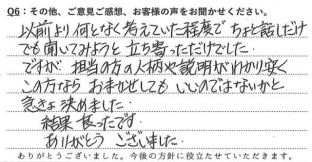 Q6：その他、ご意見ご感想、お客様の声をお聞かせください。
以前より何となく考えていた程度でちょと話しだけ
でも聞いてみようと立ち寄っただけでした。
ですが 担当の方の人柄や説明がわかり安く
この方なら おまかせしても いいのではないかと
急きょ決めました。
結果 良ったです。
ありがとう ございました。
ありがとうございました。今後の方針に役立たせていただきます。